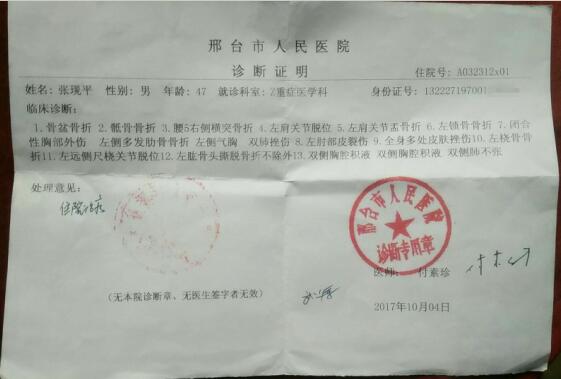 邢台市人民医院
诊断证明
住院号：A032312x01
姓名：张现平 性别：男 年龄：47 就诊科室：Z重症医学科 身份证号：132227197001
临床诊断：
1.骨盆骨折 2.骶骨骨折 3.腰5右侧横突骨折 4.左肩关节脱位 5.左肩关节盂骨折 6.左锁骨骨折 7.闭合
性胸部外伤 左侧多发肋骨骨折 左侧气胸 双肺挫伤 8.左肘部皮裂伤 9.全身多处皮擦挫伤10.左桡骨骨
折11.左远侧尺桡关节脱位12.左肱骨头撕脱骨折不除外13.双侧胸腔积液 双侧胸腔积液 双侧肺不张
处理意见：
住院治疗
邢台市人民医院
诊断专用章
医师： 付素珍
（无本院诊断章、无医生签字者无效）
2017年10月04日